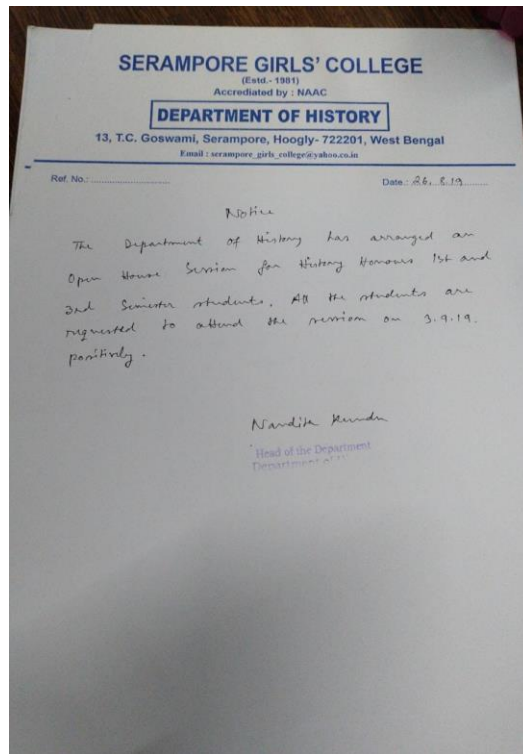 SERAMPORE GIRLS' COLLEGE
(Estd.- 1981)
Accrediated by : NAAC
DEPARTMENT OF HISTORY
13, T.C. Goswami, Serampore, Hoogly- 722201, West Bengal
Email : serampore_girls_college@yahoo.co.in
Ref. No.: ............................ Date : 26.8.19
Notice
The Department of History has arranged an
Open House Session for History Honours 1st and
3rd Semister students. All the students are
requested to attend the session on 3.9.19.
positively.
Nandita Kundu
Head of the Department
Department of